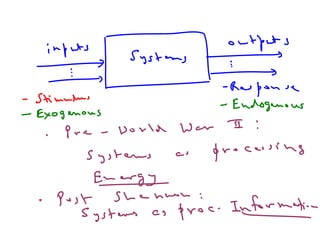 inputs
Systems
outputs
- Stimulus
- Exogenous
- Response
- Endogenous
. Pre - World War II :
Systems as processing
Energy
. Post Shannon :
Systems as proc. Information